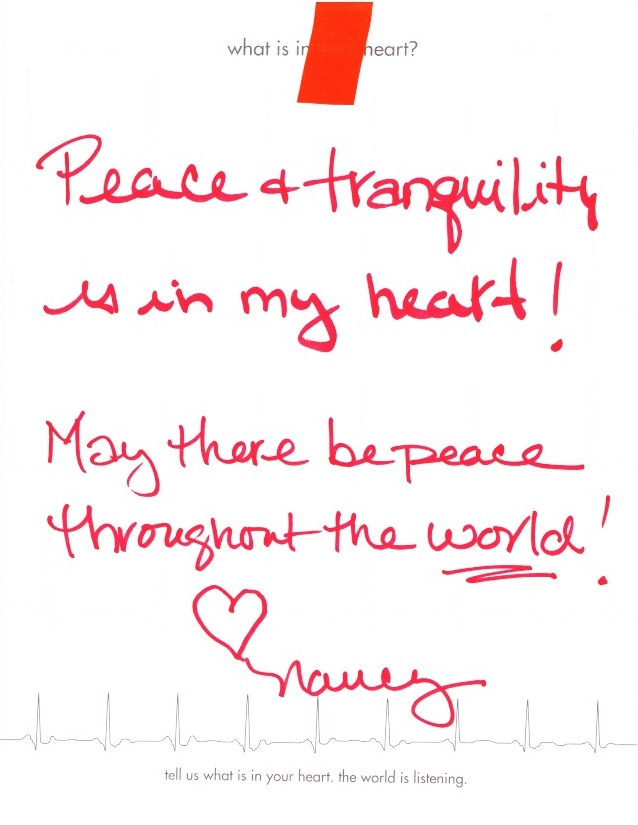 what is in heart?
Peace & tranquility
is in my heart!
May there be peace
throughout the world!
Nancy
tell us what is in your heart. the world is listening.